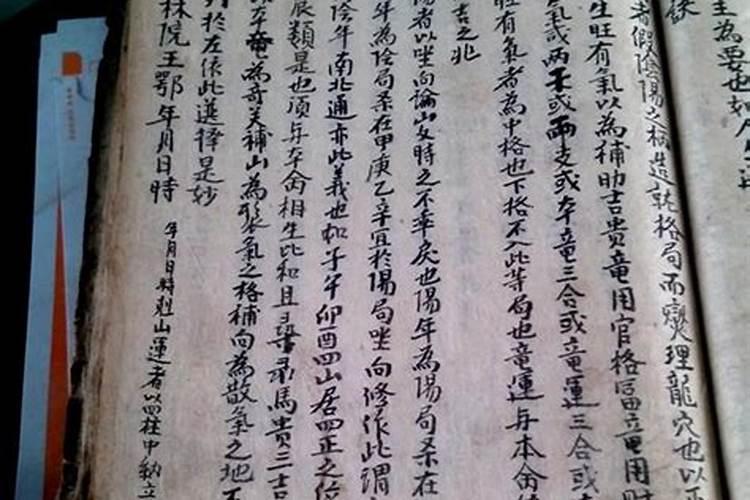 主為要也如人生
訣
者假陰陽之柄造就格局而燮理龍穴也以
生旺有氣以為補助吉貴竜用官格冨竜用財
氣或两干或兩支或本竜三合或竜運三合或
旺有氣者為中格也下格不入此等局也竜運与本命
吉之兆
陽者以坐向論山女時之不乖戾也陽年為陽局系在
年為陰局系在甲庚乙辛宜於陽局坐向修作此謂
陰年南北通亦此義也如子午卯酉四山居四正之位
辰類是也須与本命相生比和且尋录馬貴三吉
本竜為奇美補山為聚氣之格補向為散氣之地
於左依此選擇是妙
林院王鄂年月日時
年月日時尅山運者以四柱中納